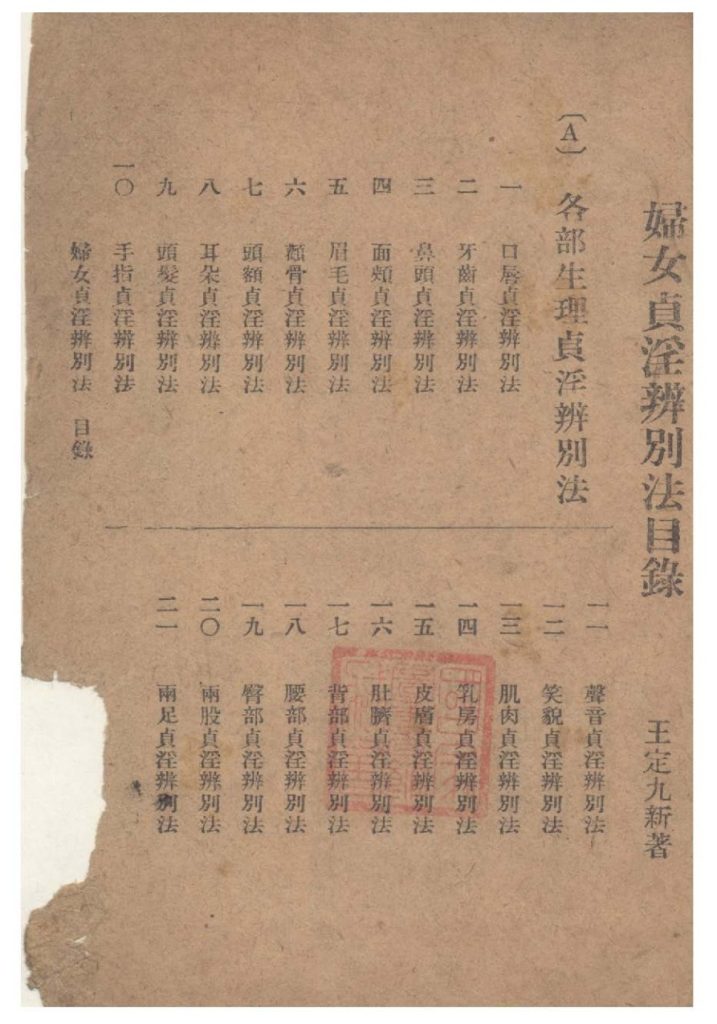 婦女貞淫辨別法目錄
王定九新著
〔A〕 各部生理貞淫辨別法
一 口唇貞淫辨別法
二 牙齒貞淫辨別法
三 鼻頭貞淫辨別法
四 面頰貞淫辨別法
五 眉毛貞淫辨別法
六 顴骨貞淫辨別法
七 頭額貞淫辨別法
八 耳朶貞淫辨別法
九 頭髮貞淫辨別法
一〇 手指貞淫辨別法
一一 聲音貞淫辨別法
一二 笑貌貞淫辨別法
一三 肌肉貞淫辨別法
一四 乳房貞淫辨別法
一五 皮膚貞淫辨別法
一六 肚臍貞淫辨別法
一七 背部貞淫辨別法
一八 腰部貞淫辨別法
一九 臀部貞淫辨別法
二〇 兩股貞淫辨別法
二一 兩足貞淫辨別法
婦女貞淫辨別法 目錄
一